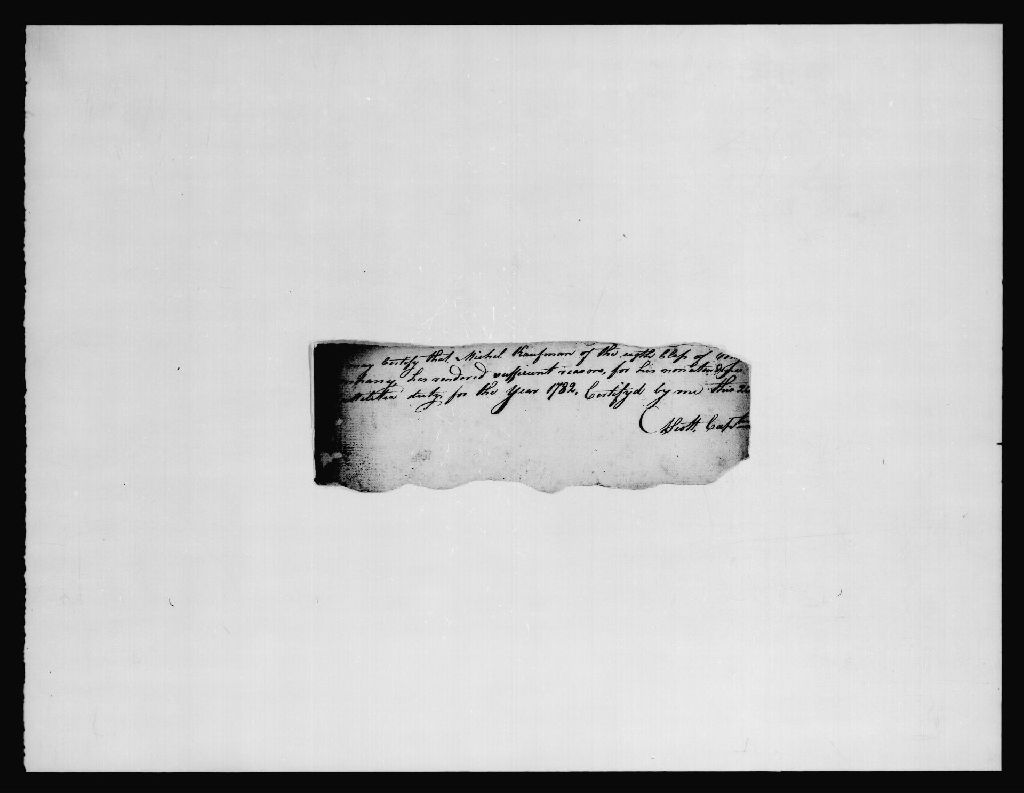 Certify that Michel Kaufman of the eigth Class of
has rendered sufficient reasons, for his
Militia duty, for the Year 1782. Certifyd by me this
Scott, Capt